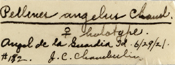 Pellenes angelus Chamb.
♀ holotype.
Angel de la Guardia Id. 6/29/21.
#182. J. C. Chamberlin